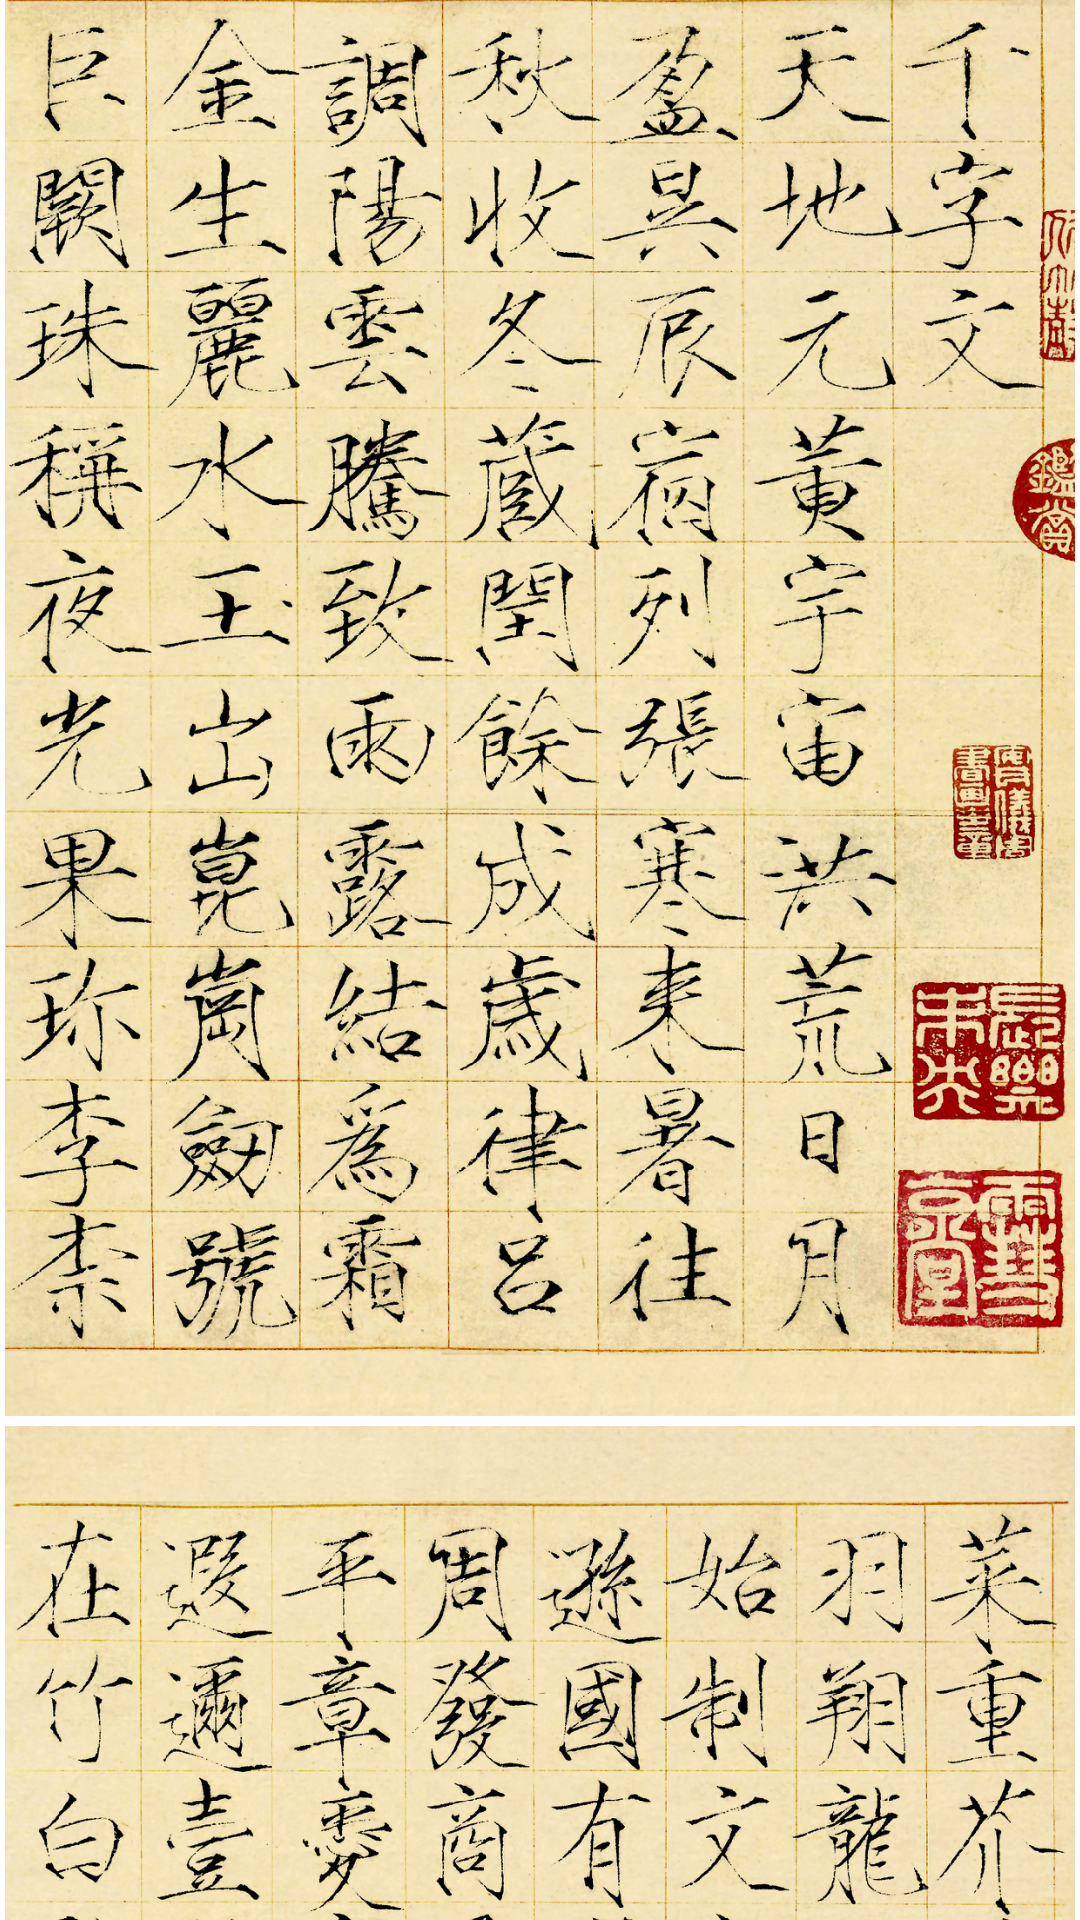 千字文
天地元黃宇宙洪荒日月
盈昃辰宿列張寒来暑往
秋收冬蔵閏餘成歲律呂
調陽雲騰致雨露結爲霜
金生麗水玉出崑崗劔號
巨闕珠稱夜光果珎李柰
菜重芥
羽翔龍
始制文
遜國有
周發商
平章愛
遐邇壹
在竹白